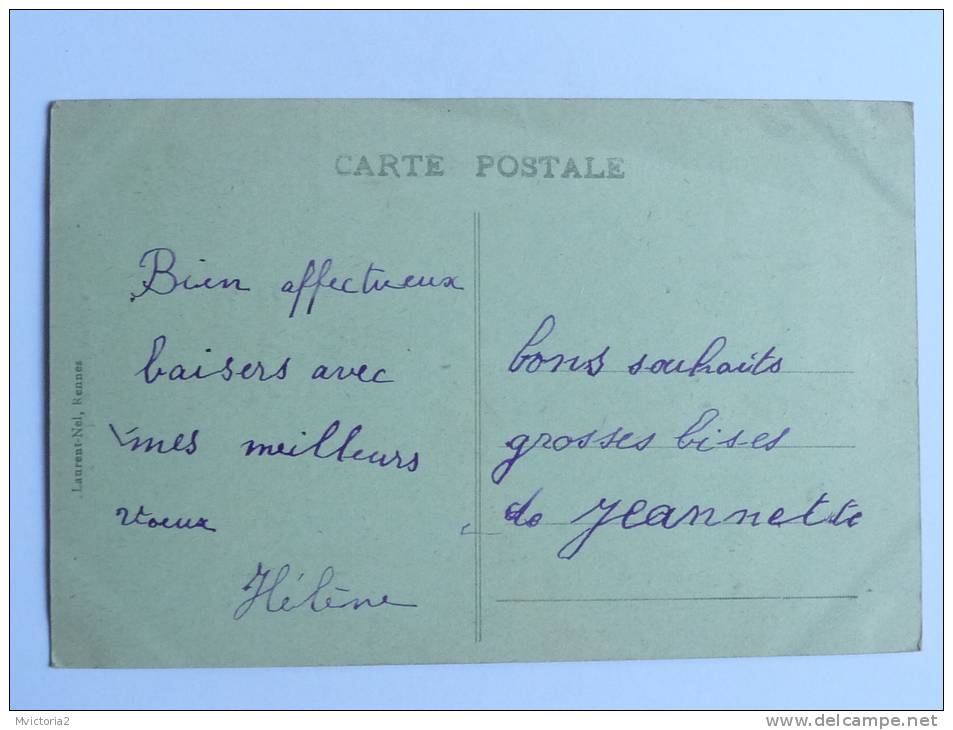 CARTE POSTALE
Bien affectueux
baisers avec
mes meilleurs
vœux
Hélène
bons souhaits
grosses bises
de Jeannette
Laurent-Nel, Rennes
Mvictoria2
www.delcampe.net